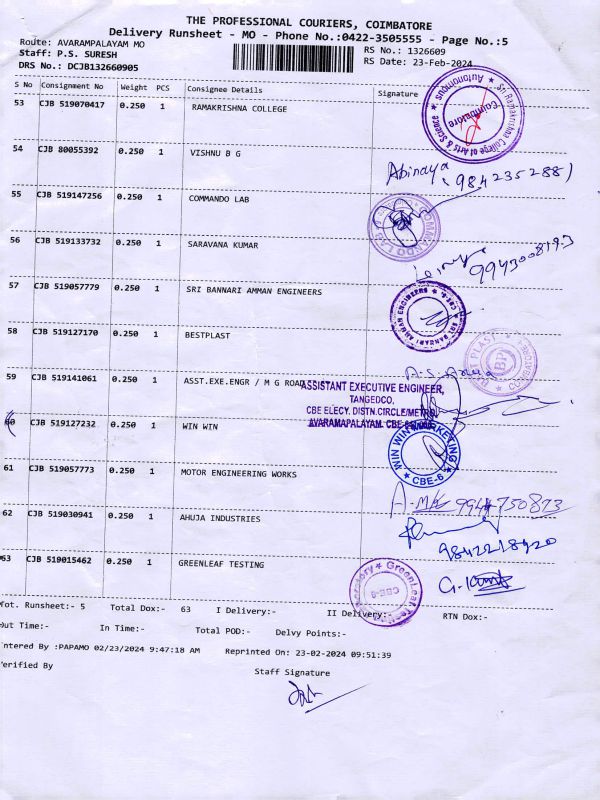 THE PROFESSIONAL COURIERS, COIMBATORE
Delivery Runsheet - MO - Phone No.:0422-3505555 - Page No.:5
Route: AVARAMPALAYAM MO
Staff: P.S. SURESH
DRS No.: DCJB132660905
RS No.: 1326609
RS Date: 23-Feb-2024
S No Consignment No Weight PCS Consignee Details Signature
53 CJB 519070417 0.250 1 RAMAKRISHNA COLLEGE
Sri Ramakrishna College of Arts & Science ★ Autonomous ★
Coimbatore
54 CJB 80055392 0.250 1 VISHNU B G
Abinaya (9842352881)
55 CJB 519147256 0.250 1 COMMANDO LAB
COMMANDO LAB
56 CJB 519133732 0.250 1 SARAVANA KUMAR
57 CJB 519057779 0.250 1 SRI BANNARI AMMAN ENGINEERS
SRI BANNARI AMMAN ENGINEERS
58 CJB 519127170 0.250 1 BESTPLAST
59 CJB 519141061 0.250 1 ASST.EXE.ENGR / M G ROAD
ASSISTANT EXECUTIVE ENGINEER,
TANGEDCO,
CBE ELECY. DISTN.CIRCLE/METRO,
AVARAMAPALAYAM, CBE
60 CJB 519127232 0.250 1 WIN WIN
WIN WIN MARKETING
★ CBE-6 ★
61 CJB 519057773 0.250 1 MOTOR ENGINEERING WORKS
62 CJB 519030941 0.250 1 AHUJA INDUSTRIES
9842218920
63 CJB 519015462 0.250 1 GREENLEAF TESTING
GreenLeaf Testing Laboratory ★
CBE-6
Tot. Runsheet:- 5 Total Dox:- 63 I Delivery:- II Delivery:- RTN Dox:-
Out Time:- In Time:- Total POD:- Delvy Points:-
Entered By :PAPAMO 02/23/2024 9:47:18 AM Reprinted On: 23-02-2024 09:51:39
Verified By Staff Signature